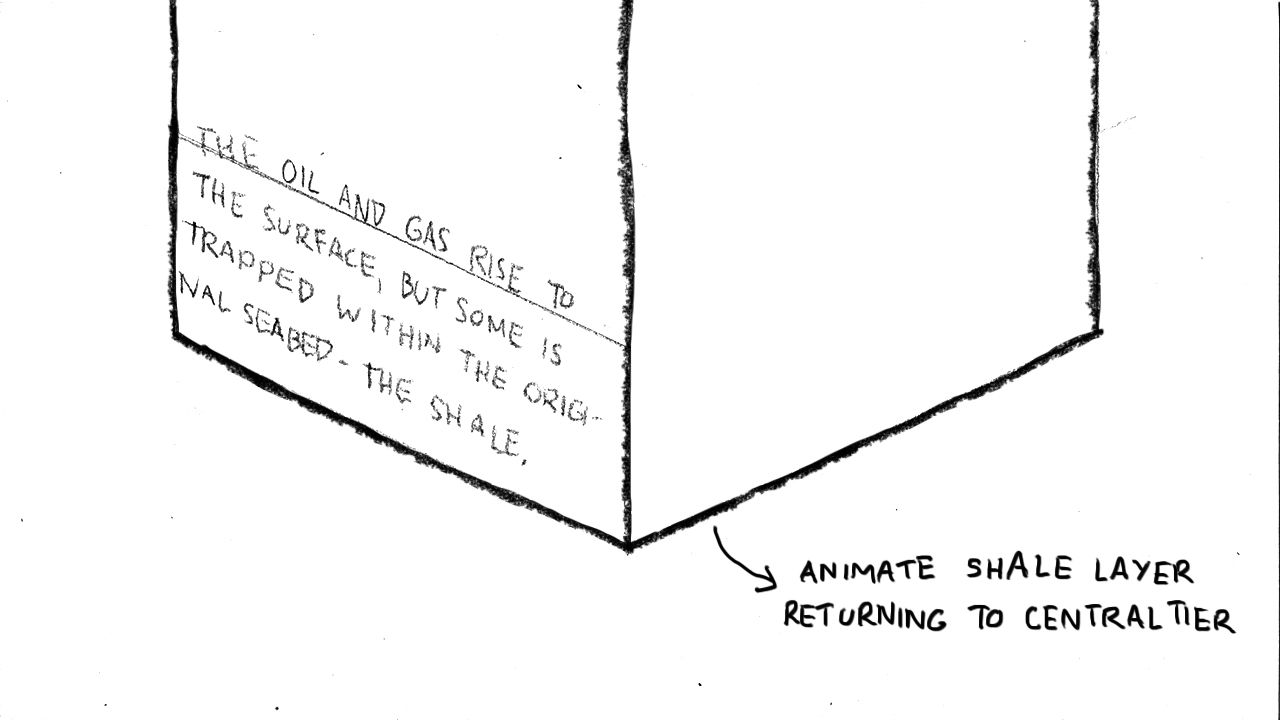 THE OIL AND GAS RISE TO
THE SURFACE, BUT SOME IS
TRAPPED WITHIN THE ORIGI-
NAL SEABED - THE SHALE.
ANIMATE SHALE LAYER
RETURNING TO CENTRAL TIER